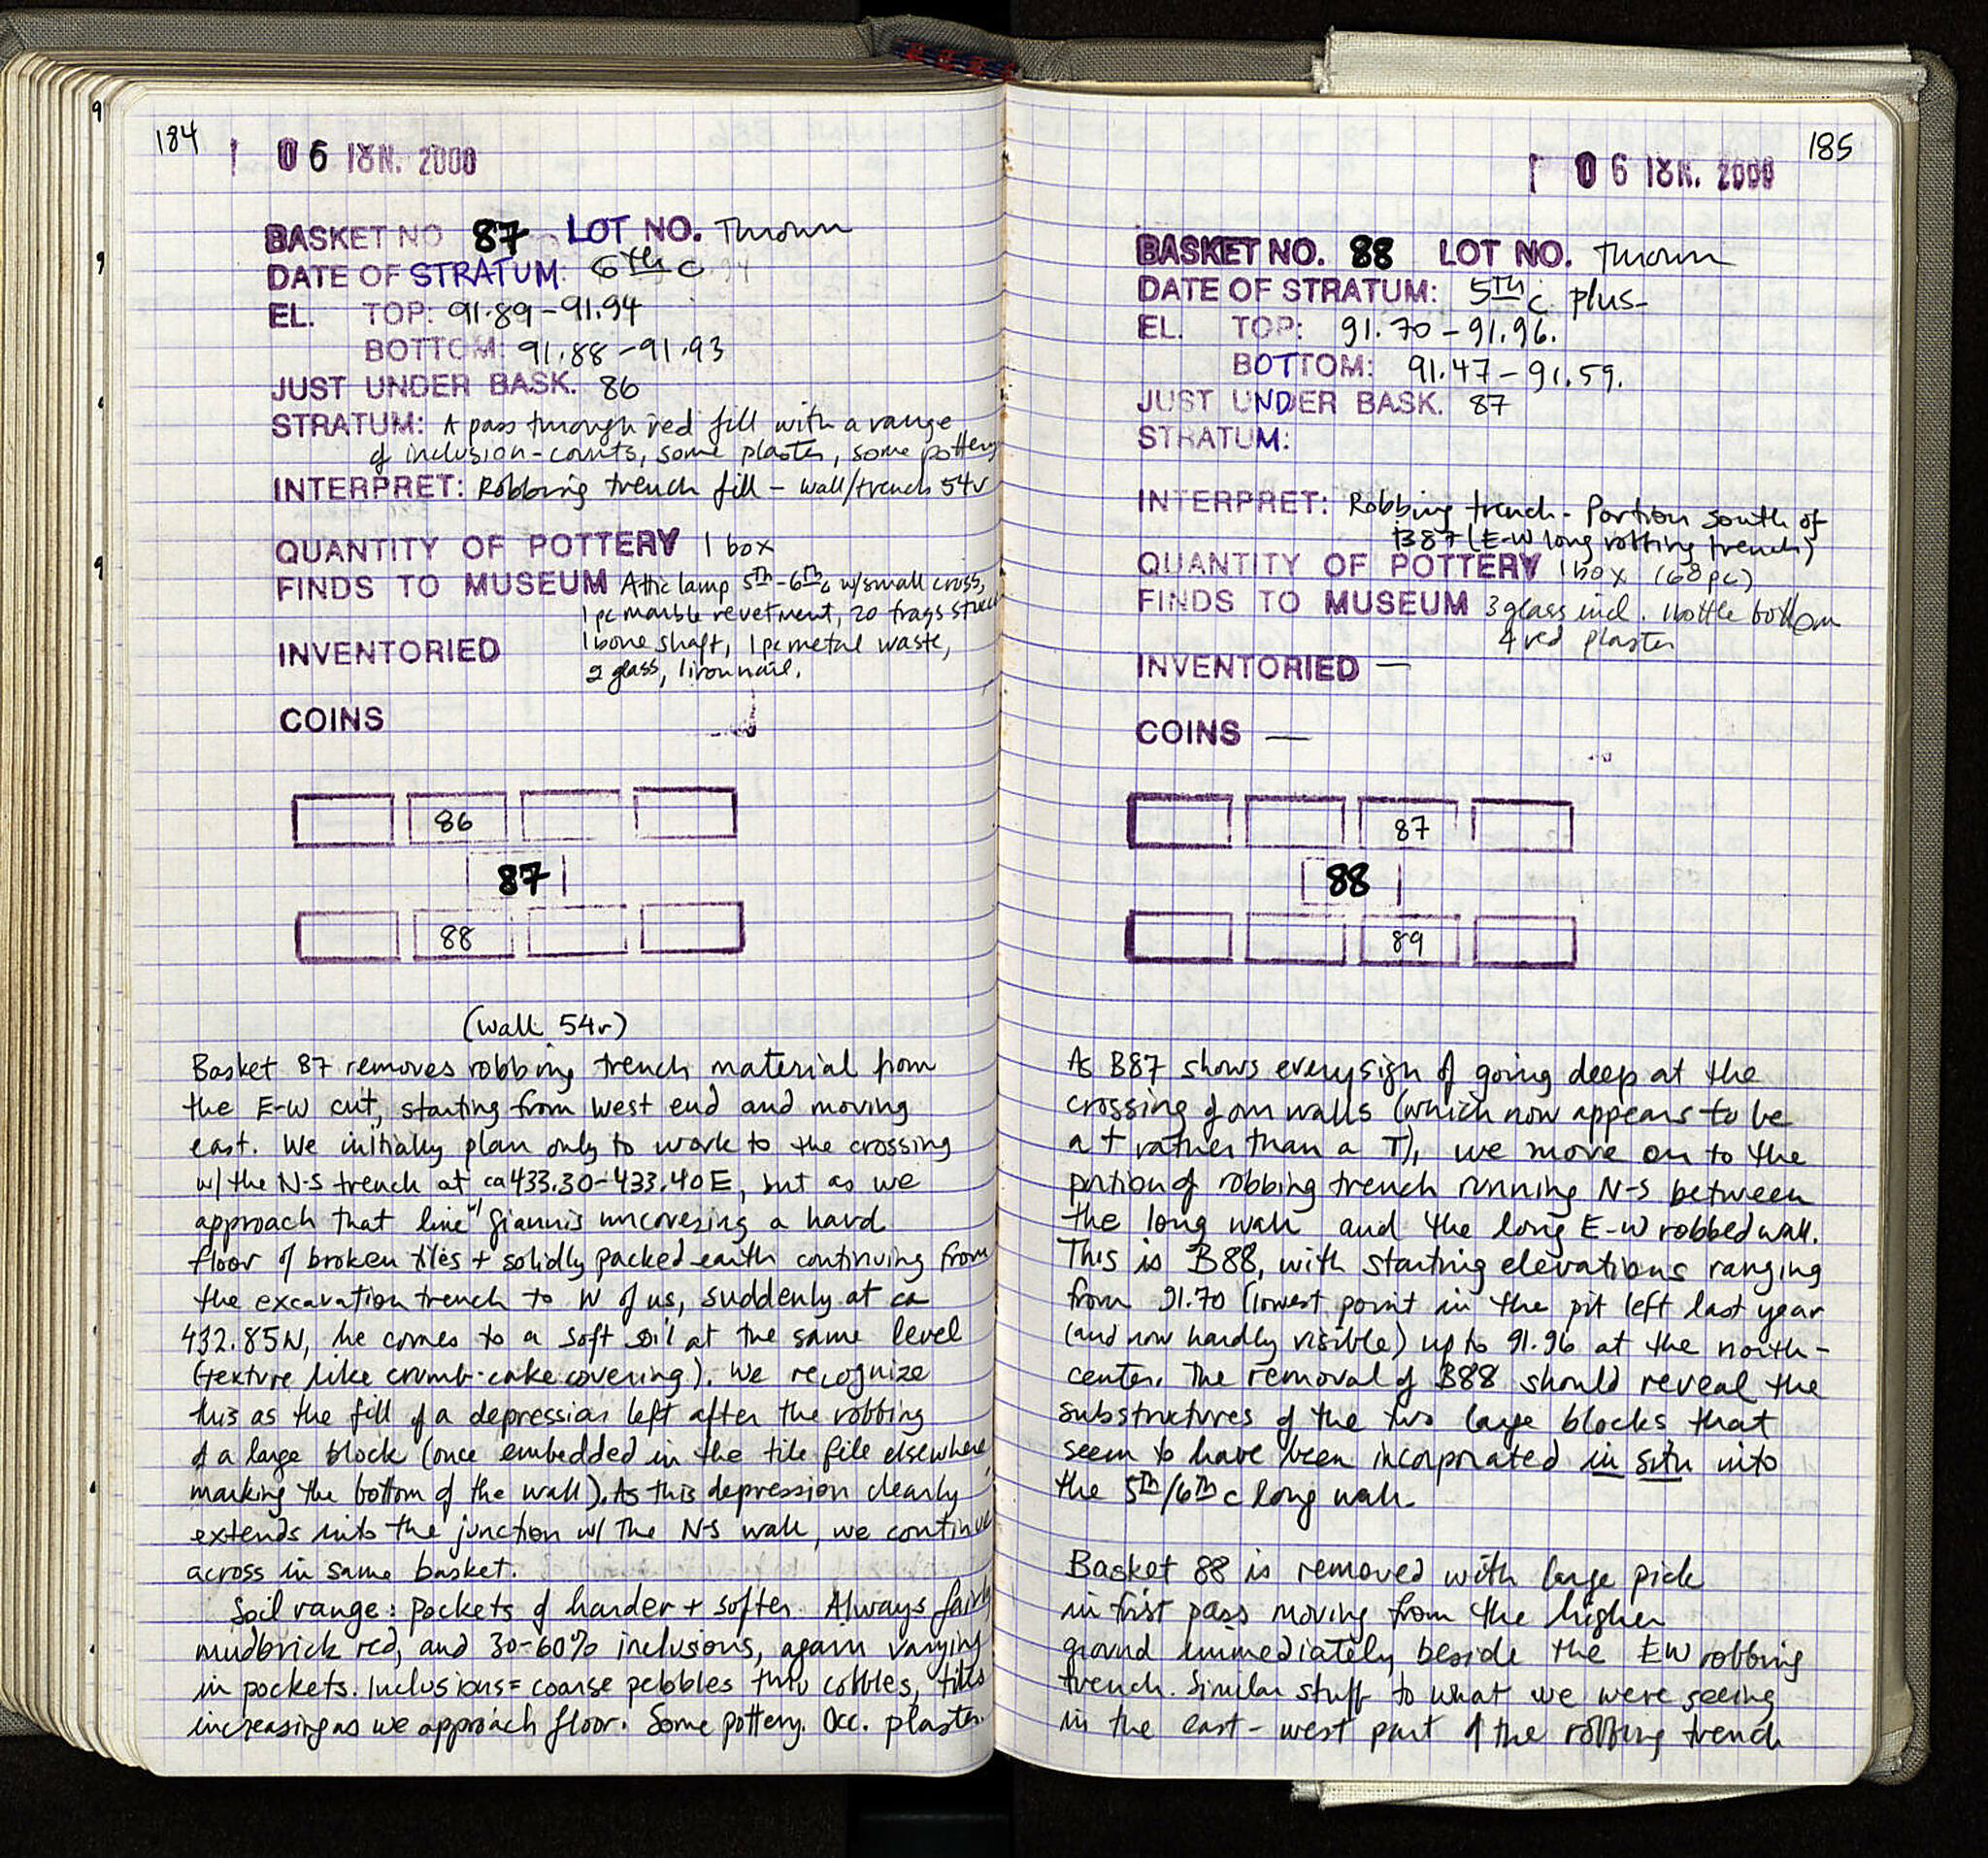 184
06 ΙΟΥΝ. 2000
BASKET NO 87 LOT NO. Thrown
DATE OF STRATUM: 6th c
EL. TOP: 91.89-91.94
BOTTOM: 91.88-91.93
JUST UNDER BASK. 86
STRATUM: A pass through red fill with a range
of inclusion-counts, some plaster, some pottery
INTERPRET: Robbing trench fill - wall/trench 54r
QUANTITY OF POTTERY 1 box
FINDS TO MUSEUM Attic lamp 5th-6th c w/small cross,
1 pc marble revetment, 20 frags stucco
INVENTORIED 1 bone shaft, 1 pc metal waste,
2 glass, 1 iron nail.
COINS
86
87
88
(wall 54r)
Basket 87 removes robbing trench material from
the E-W cut, starting from west end and moving
east. We initially plan only to work to the crossing
w/ the N-S trench at ca 433.30-433.40E, but as we
approach that line w/ Giannis uncovering a hard
floor of broken tiles + solidly packed earth continuing from
the excavation trench to W of us, suddenly at ca
432.85N, he comes to a soft soil at the same level
(texture like crumb-cake covering). We recognize
this as the fill of a depression left after the robbing
of a large block (once embedded in the tile file elsewhere,
marking the bottom of the wall). As this depression clearly
extends into the junction w/ the N-S wall, we continue
across in same basket.
Soil range: pockets of harder + softer. Always fairly
mudbrick red, and 30-60% inclusions, again varying
in pockets. Inclusions = coarse pebbles thru cobbles, tiles
increasing as we approach floor. Some pottery. Occ. plaster.
185
06 ΙΟΥΝ. 2000
BASKET NO. 88 LOT NO. Thrown
DATE OF STRATUM: 5TH c. plus-
EL. TOP: 91.70-91.96.
BOTTOM: 91.47-91.59.
JUST UNDER BASK. 87
STRATUM:
INTERPRET: Robbing trench - Portion south of
B87 (E-W long robbing trench)
QUANTITY OF POTTERY 1 box (68 pc)
FINDS TO MUSEUM 3 glass incl. 1 bottle bottom
4 red plaster
INVENTORIED —
COINS —
87
88
89
As B87 shows every sign of going deep at the
crossing of our walls (which now appears to be
a + rather than a T), we move on to the
portion of robbing trench running N-S between
the long wall and the long E-W robbed wall.
This is B88, with starting elevations ranging
from 91.70 (lowest point in the pit left last year
(and now hardly visible) up to 91.96 at the north-
center. The removal of B88 should reveal the
substructures of the two large blocks that
seem to have been incorporated in situ into
the 5th/6th c long wall.
Basket 88 is removed with large pick
in first pass moving from the higher
ground immediately beside the EW robbing
trench. Similar stuff to what we were seeing
in the east-west part of the robbing trench